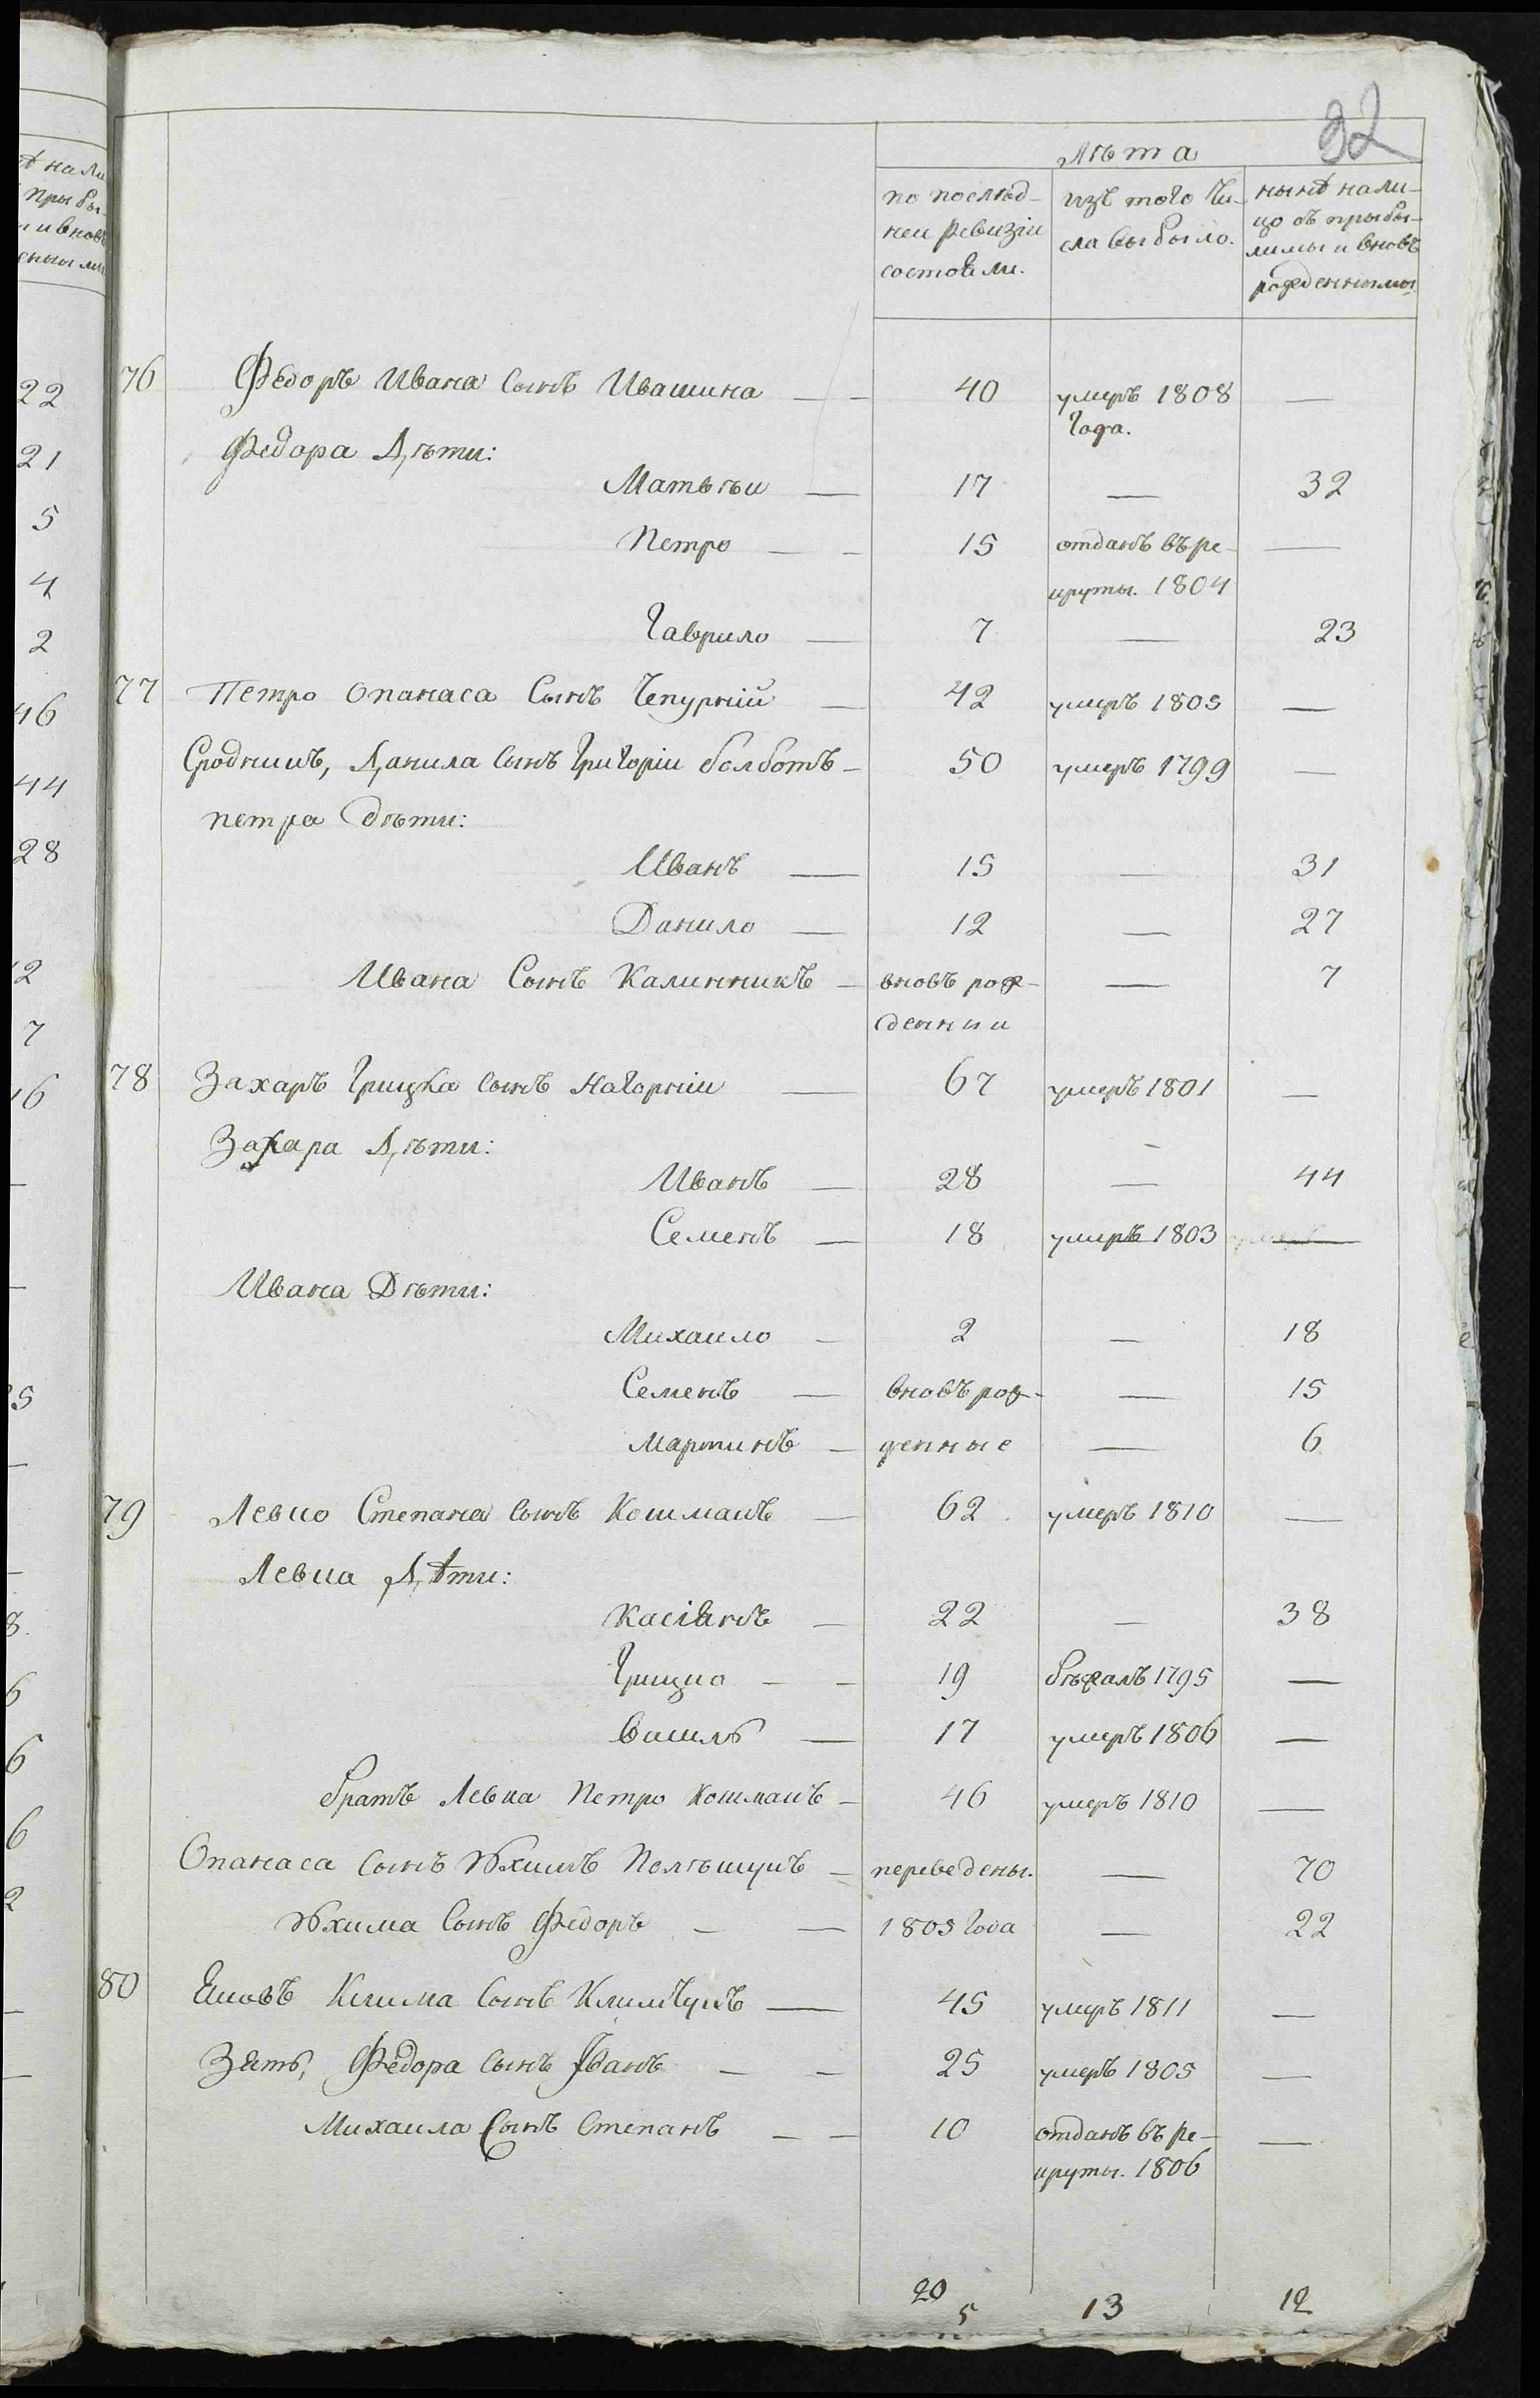 32
Лѣта
по послѣд-
неи ревизіи
состояли.
изъ того чи-
сла выбыло.
нынѣ нали-
цо съ прыбы-
лимы и вновъ
рожденнымы
76 Федоръ Ивана сынъ Ивашина — — 40 умеръ 1808 —
года.
Федора Дѣти:
Матвѣи — 17 — 32
Петро — — 15 отданъ въ ре- —
круты. 1804
Гаврило — 7 — 23
77 Петро Опанаса Сынъ Чепурній — 42 умеръ 1805 —
Сродникъ, Данила сынъ Григоріи болботъ — 50 умеръ 1799 —
петра дѣти:
Иванъ — 15 — 31
Данило — 12 — 27
Ивана Сынъ Калинникъ — вновъ рож- — 7
деннии
78 Захаръ Грицка сынъ Нагорніи — 67 умеръ 1801 —
Захара Дѣти: —
Иванъ — 28 — 44
Семенъ — 18 умеръ 1803 —
Ивана Дѣти:
Михаило — 2 — 18
Семенъ — вновъ рож- — 15
Мартинъ — денные — 6
79 Левко Степана сынъ Кошманъ — 62 умеръ 1810 —
Левка Дѣти:
Касіянъ — 22 — 38
Грицко — — 19 бѣжалъ 1795 —
Василь — 17 умеръ 1806 —
братъ Левка Петро Кошманъ — 46 умеръ 1810 —
Опанаса сынъ Юхимъ Полѣщукъ — переведены. — 70
Юхима Сынъ Федоръ — — 1803 года — 22
80 Яковъ Клима сынъ Климчукъ — 45 умеръ 1811 —
Зять, Федора сынъ Іванъ — — 25 умеръ 1805 —
Михаила Сынъ Степанъ — — 10 отданъ въ ре- —
круты. 1806
20 13 12
5